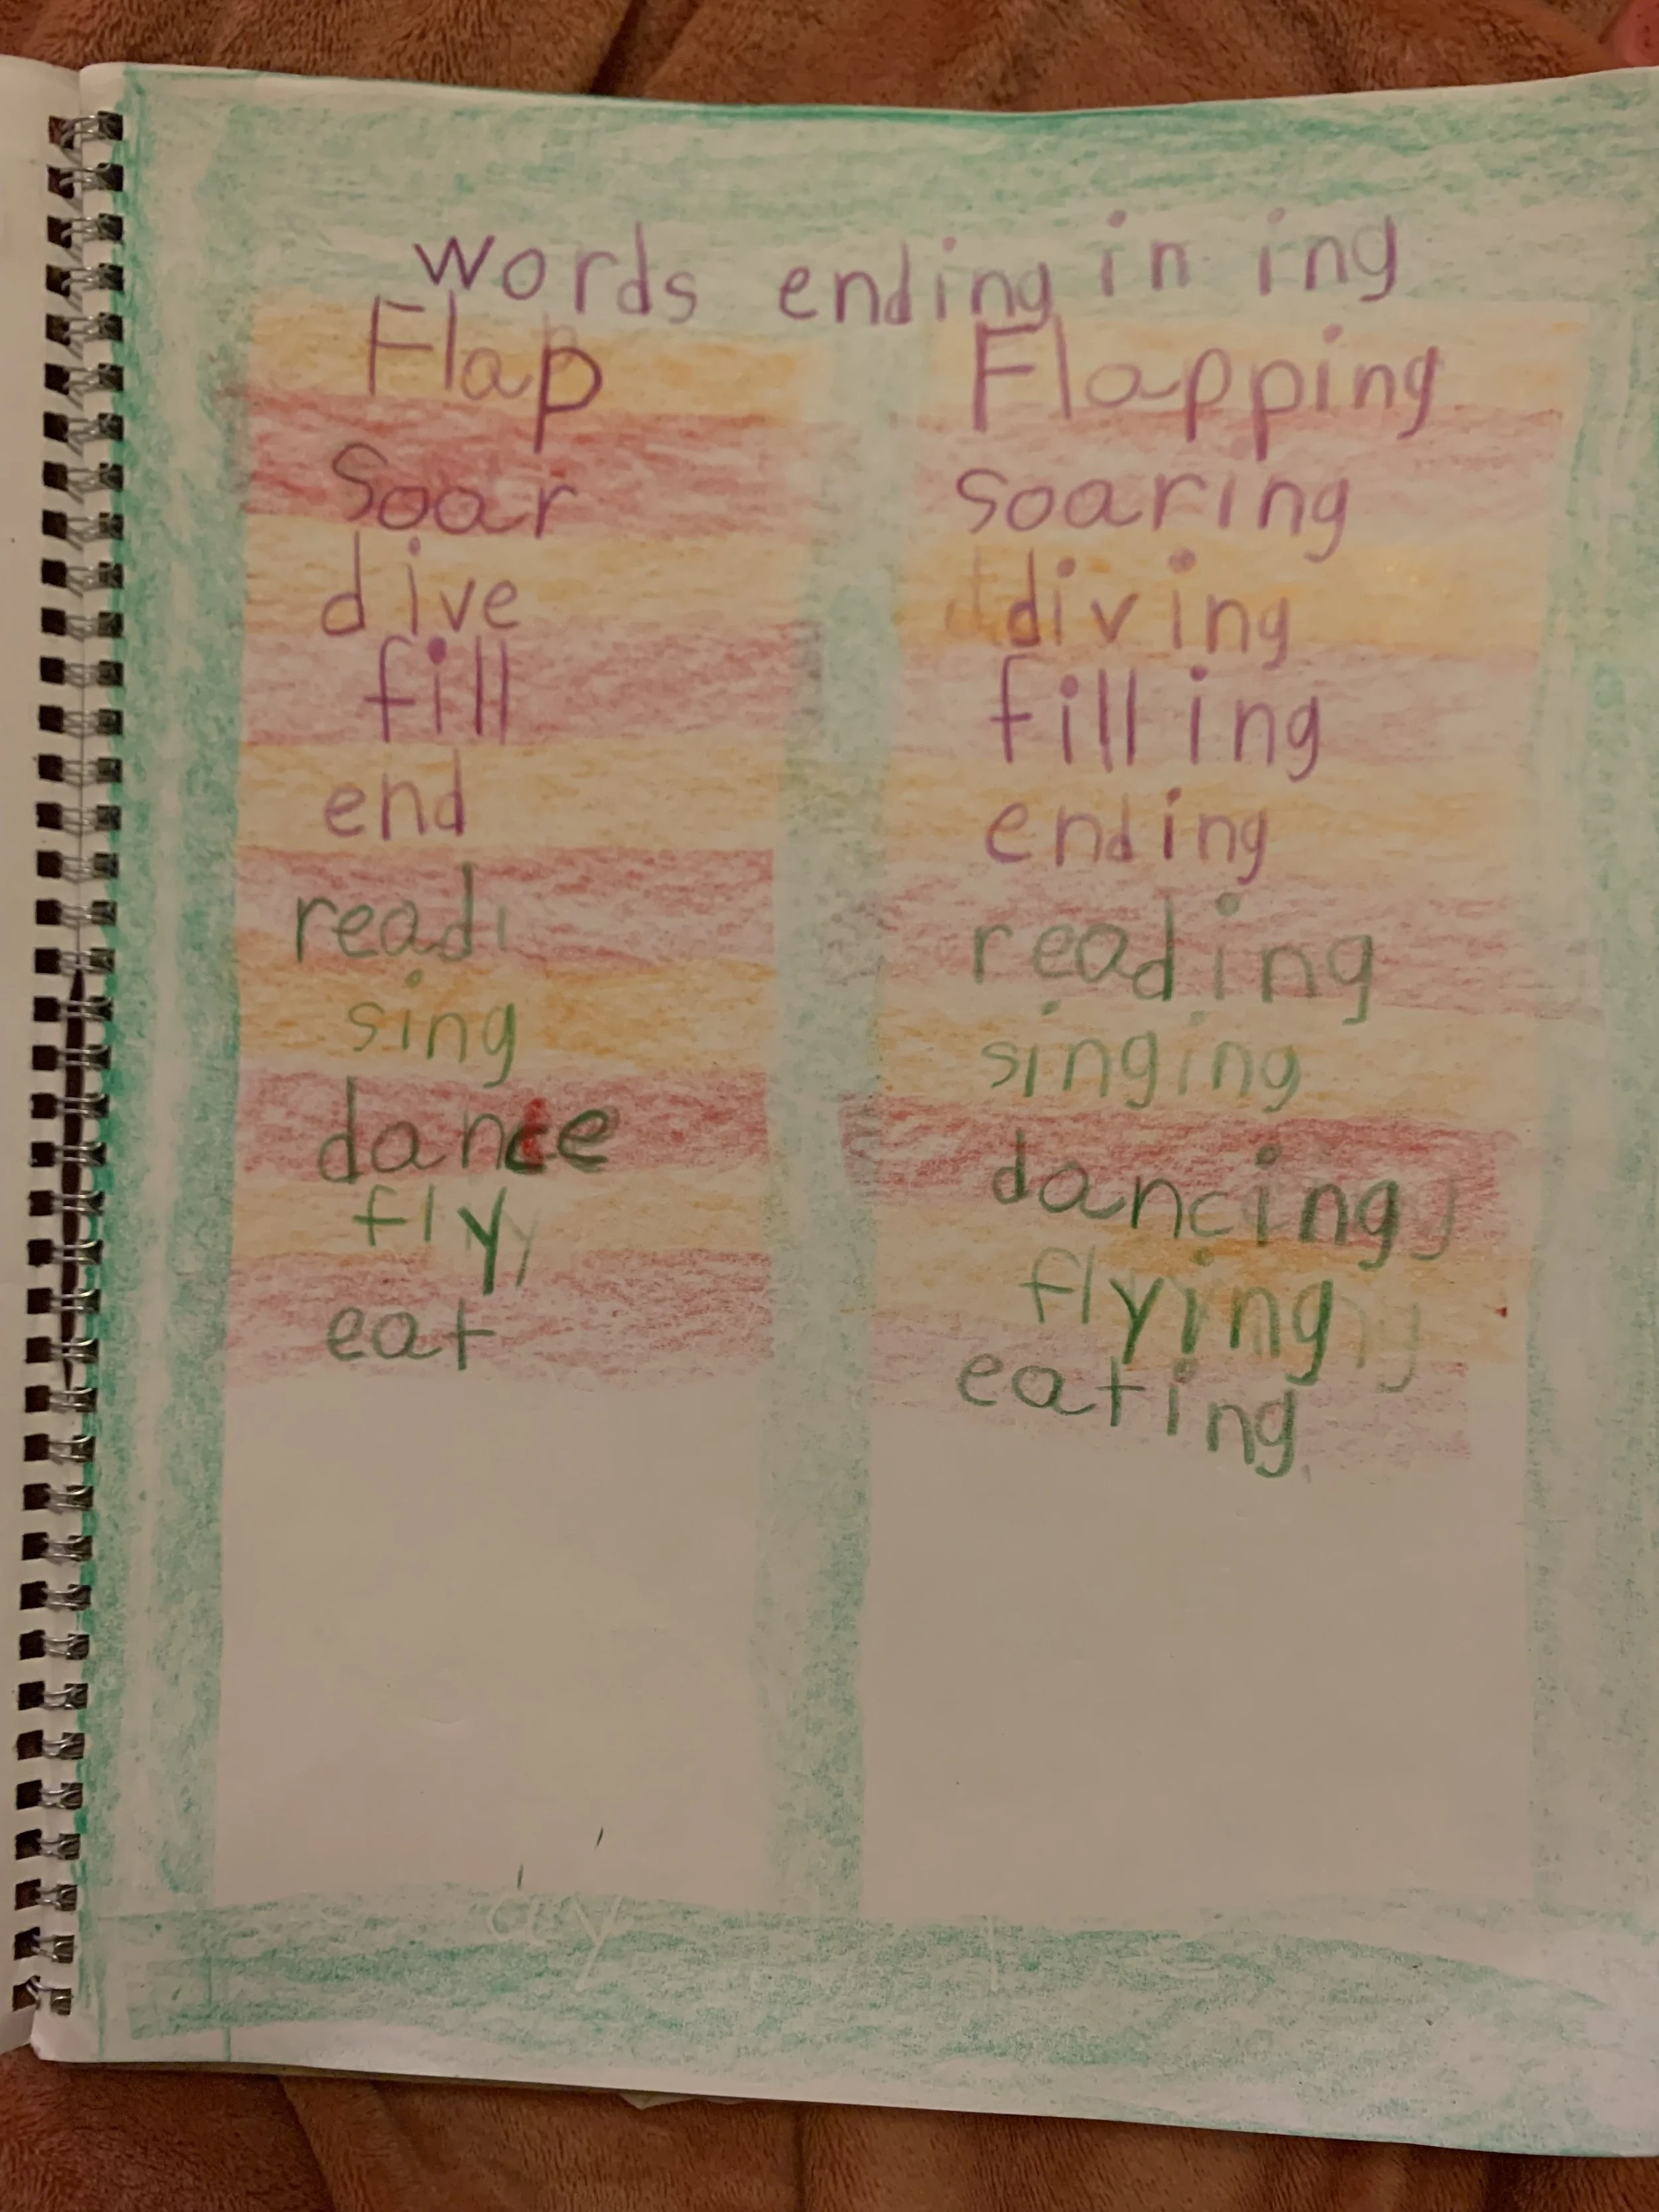 words ending in ing
Flap Flapping
Soar soaring
dive diving
fill filling
end ending
read reading
sing singing
dance dancing
fly flying
eat eating
ay